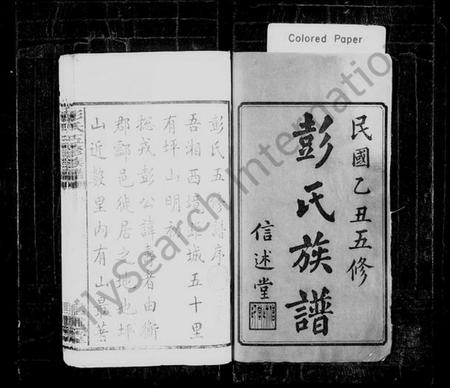 Colored Paper
民國乙丑五修
彭氏族譜
信述堂
彭氏五修譜序
吾湘西境距城五十里
有坪山明
総戎彭公諱 者由衡
郡酃邑徙居之地也坪
山近數里內有山
ilySearch Internatio